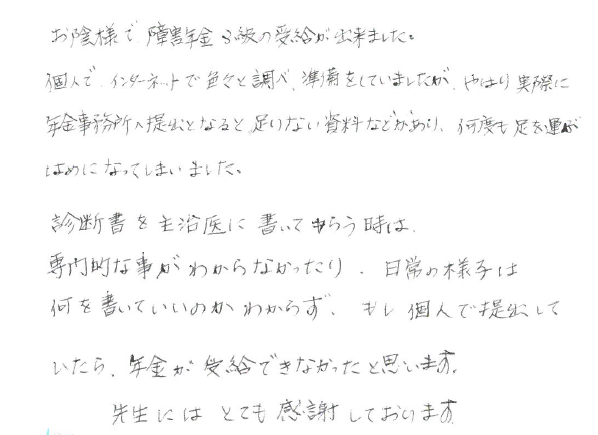 お陰様で障害年金3級の受給が出来ました。
個人で、インターネットで色々と調べ、準備をしていましたが、やはり実際に
年金事務所へ提出となると足りない資料などがあり、何度も足を運ぶ
はめになってしまいました。
診断書を主治医に書いてもらう時は、
専門的な事がわからなかったり、日常の様子は
何を書いていいのかわからず、もし個人で提出して
いたら、年金が受給できなかったと思います。
先生にはとても感謝しております